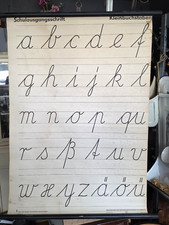 Schulausgangsschrift Kleinbuchstaben
a b c d e f
g h i j k l
m n o p qu
r s ß t u v
w x y z ä ö ü